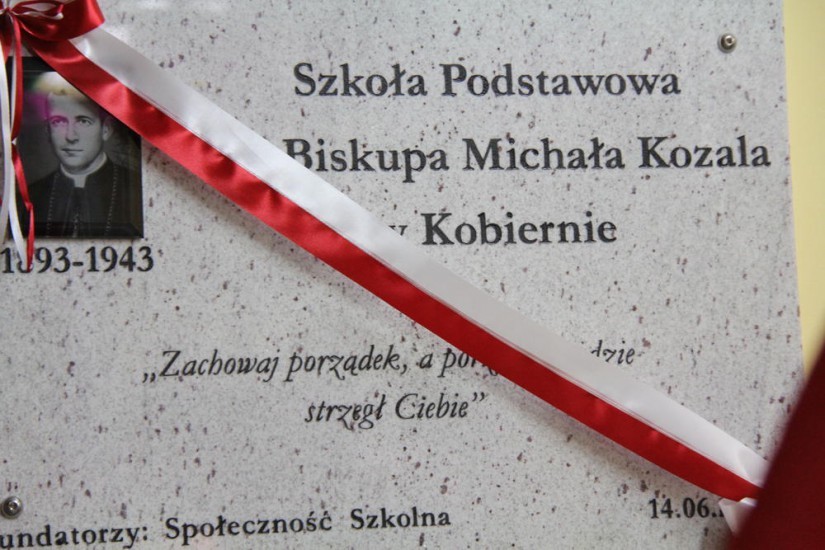 Szkoła Podstawowa
Biskupa Michała Kozala
w Kobiernie
1893-1943
„Zachowaj porządek, a
strzegł Ciebie”
Fundatorzy: Społeczność Szkolna
14.06.